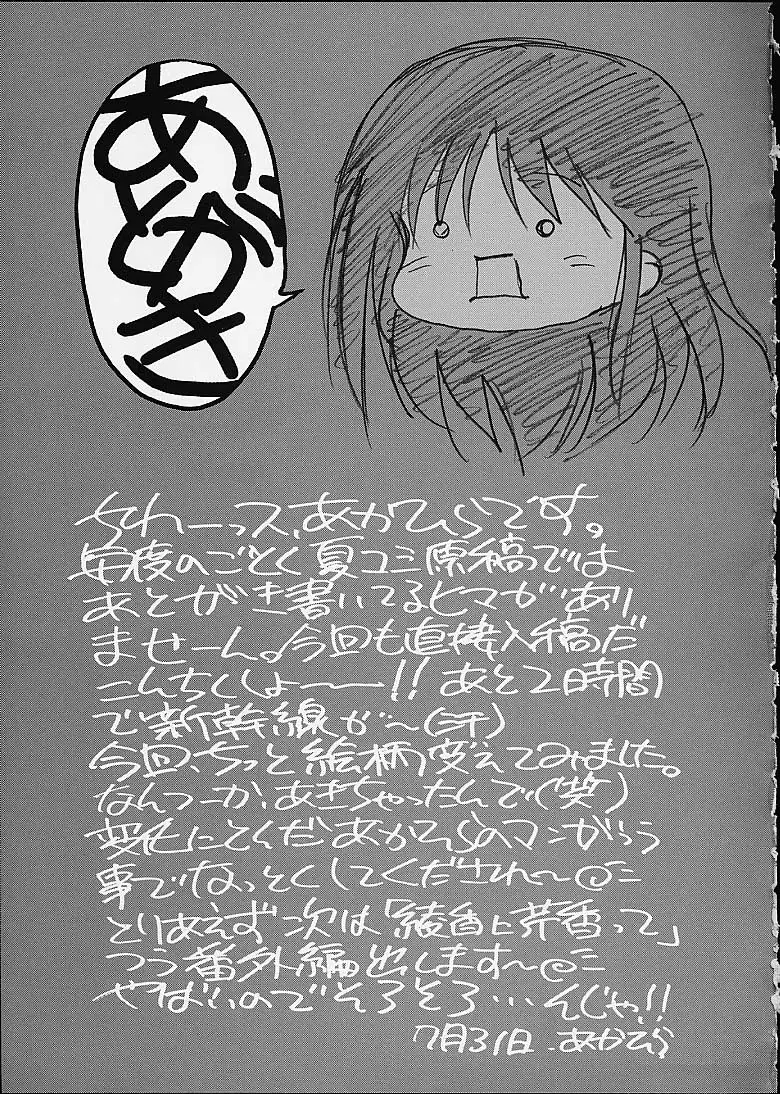 あとがき
ちわーっス、あかひらです。
毎度のごとく夏コミ原稿では
あとがき書いてるヒマがあり
ません。今回も直接入稿だ
こんちくしょーー!! あと2時間
で新幹線が〜(汗)
今回、ちっと絵柄変えてみました。
なんつーか、あきちゃったんで(笑)
変化にとんだあかひらのマンガっつう
事でなっとくしてくだされ〜
とりあえず次は「綾香と芹香って」
つう番外編出します〜
やばいのでそろそろ…んじゃ!!
7月31日 あかひら